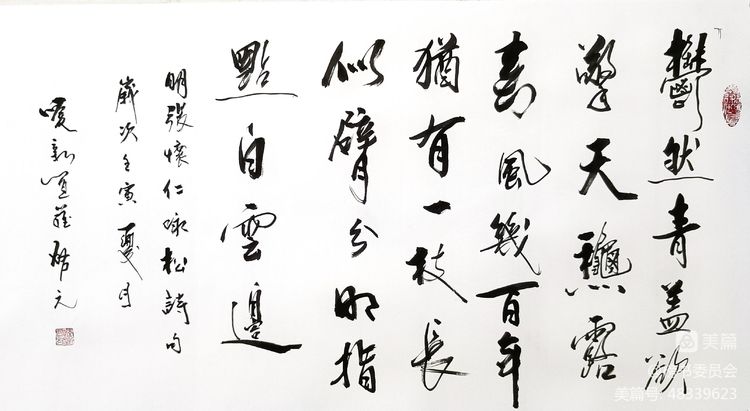 鬱然青蓋欲
擎天龝露
春風幾百年
猶有一枝長
似臂分明指
點白雲邊
明張懷仁咏松詩句
歲次壬寅夏月
元
美篇
委员会
美篇号: 48339623